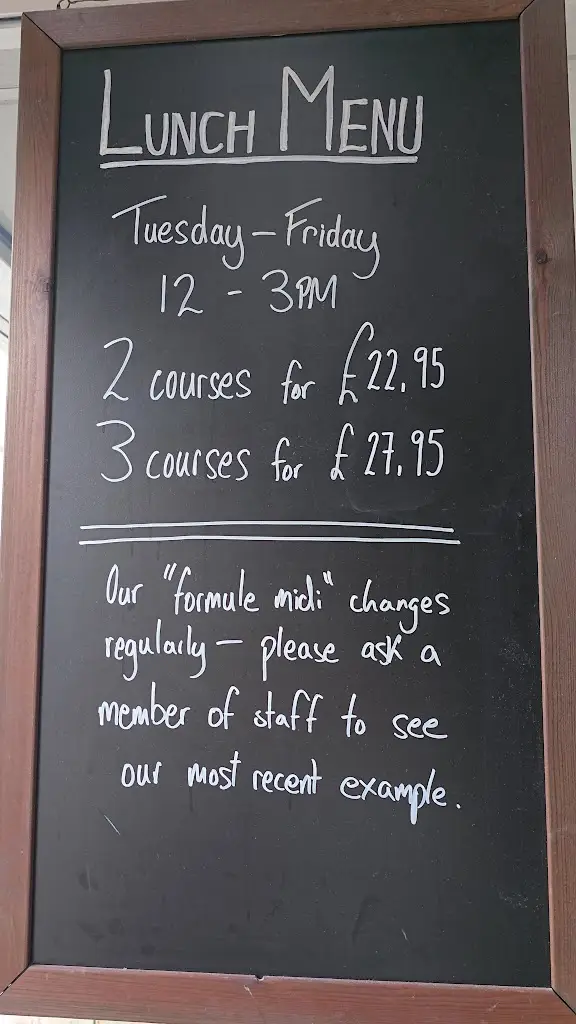 LUNCH MENU
Tuesday – Friday
12 - 3PM
2 courses for £22.95
3 courses for £27.95
Our "formule midi" changes
regularly – please ask a
member of staff to see
our most recent example.